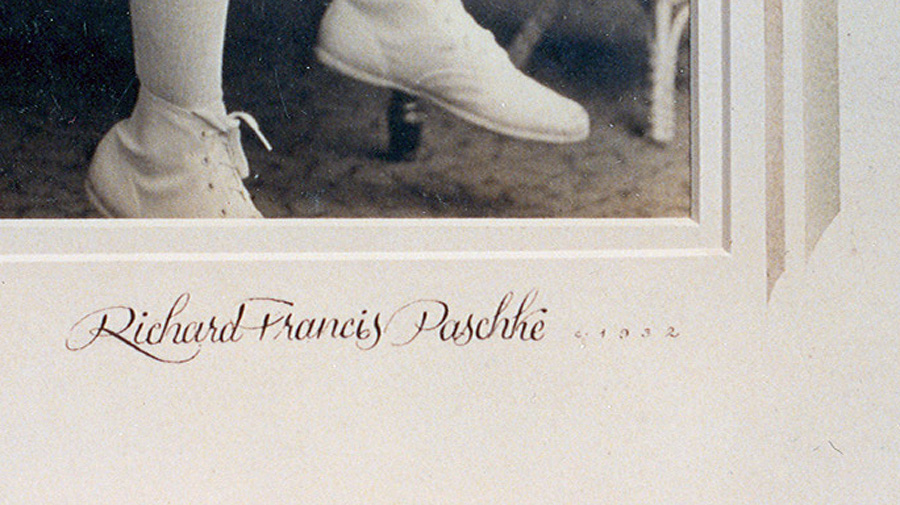 Richard Francis Paschke c 1932